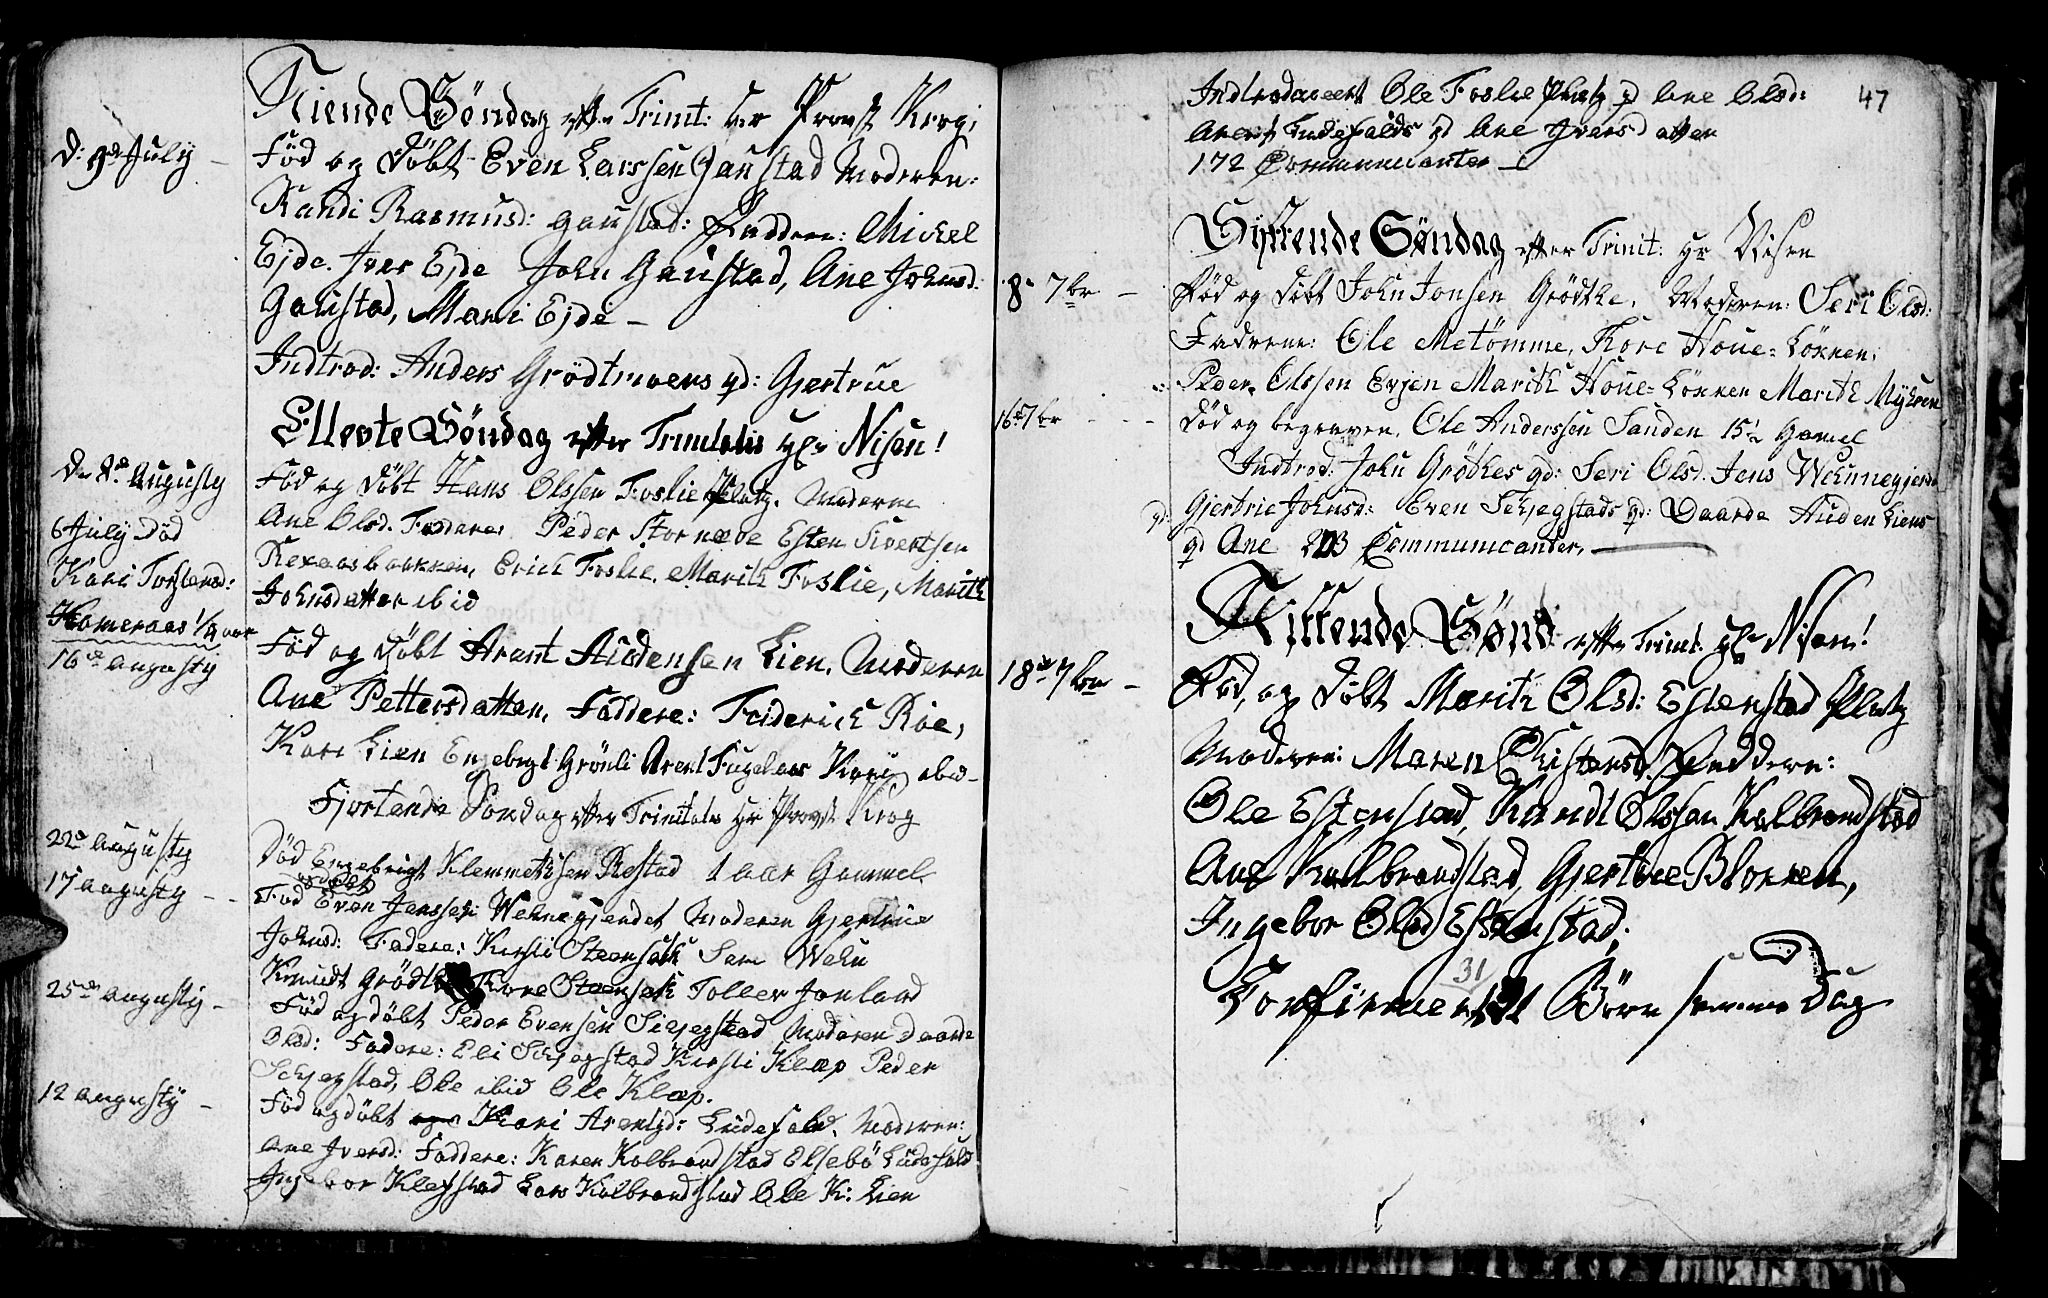 Niende Söndag efter Trinit: Hr Provst Krog,
D: 9de July –
Föd og döbt Even Larssen Gaustad Moderen:
Randi Rasmusd: gaustad: Faddere: Mickel
Ejde. Iver Ejde John Gaustad, Ane Johnsd:
Gaustad, Mari Ejde –
Indtrod: Anders Grödtrøens qd: Gjertrue
Ellevte Söndag efter Trinitatis Hr Nisen!
Augusty
Föd og döbt Hans Olssen Foslie Platz. Moderen
Ane Olsd. Faddere Peder Stornæve Esten Sivertsen
6 July Död
Kari Torstensd:
Erich Foslie. Marith Foslie, Marith
Johnsdatter ibid
Hameraas 1/4 aar
16de augusty
Föd og döbt Arent Audensen Lien. Moderen
Ane Pettersdatter, Faddere: Friderich Roe,
Kari Lien Engebrigt Grönli Arent Fugelaas Kari ibid –
Fjortende Söndag efter Trinitatis Hr Provst Krog
22de augusty
Död Engebrigt Klemmetsen Restad 1 aar Gammel
17 augusty – –
Föd og döbt Even Jenssen Wehnegjendet Moderen Gjertrue
Johnsd: Fadere: Kirsti Steensek Wehn
Knudt Grödt Kare Steensek Toller Jonland
25de augusty –
Föd og döbt Peder Evensen Schjegstad Moderen Daarde
Olsd: Fadere: Eli Schjegstad Kirsti Klæp Peder
Schjegstad, Ole ibid Ole Klæp.
12 augusty –
Föd og döbt Kari Arentzd: Ludefald. Moderen:
Ane Iversd: Faddere: Karen Kolbrandstad Elsebö Ludefald
Ingebor Klefstad Lars Kolbrandstad Ole K: Lien
47
Indtroduceert Ole Foslie Platz qd Ane Olsd:
Arent Ludefalds qd Ane Iversdatter
172 Communicanter –
Syttende Söndag efter Trinit: Hr Nisen
8de 7br –
Föd og döbt John Jonsen Grödthe. Moderen: Seri Olsd:
Fadrene: Ole Metömme, Kore Houe-Lökken,
Peder Olssen Evjen Marith Houe-Lökken Marith Myhren
16de 7br – – –
Död og begraven. Ole Anderssön Sanden 15 Gamel
Indtrod: John Grödkes qd: Seri Olsd. Jens Wehnnegjerdet
qd: Gjertrie Johnsd: Even Schjegstads qd: Daarde Auden Liens
qd Ane 203 Communicanter. –
Nittende Sönd efter Trinit. Hr Nisen!
18de 7br –
Föd, og döbt Marith Olsd: Estenstad Platz
Moderen: Maren Faddere:
Ole Estenstad, Randi Olssen Kolbrandstad
Ane Kolbrandstad, Gjertrue Blokken,
Ingebor Olsd Estenstad.
31
Confirmert Börn samme Dag